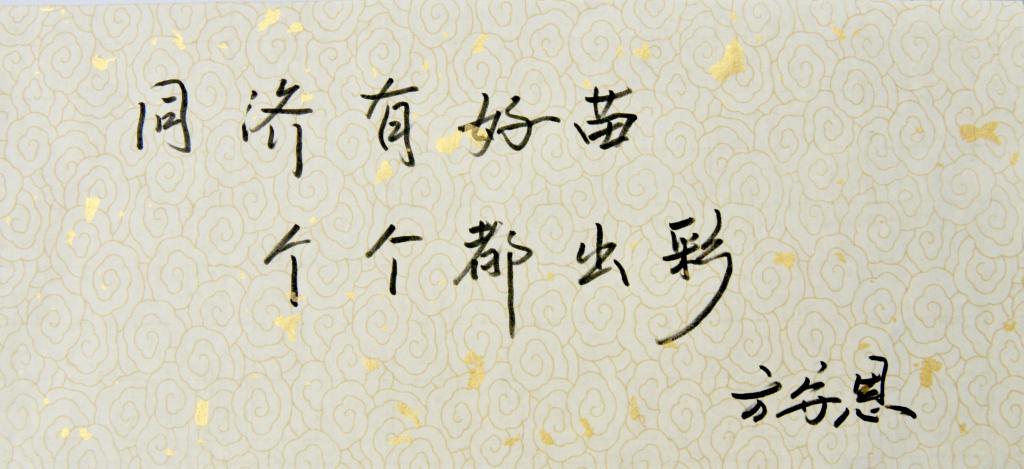 同济有好苗
个个都出彩
方守恩